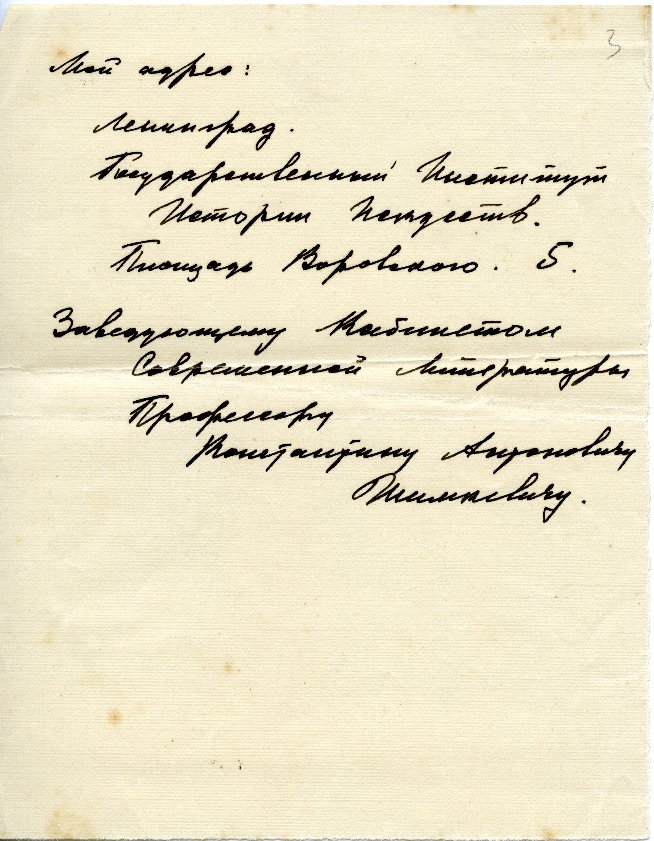 3
Мой адрес:
Ленинград.
Государственный Институт
Истории Искусств.
Площадь Воровского. 5.
Заведующему Кабинетом
Современной Литературы
Профессору
Константину Антоновичу
Шимкевичу.